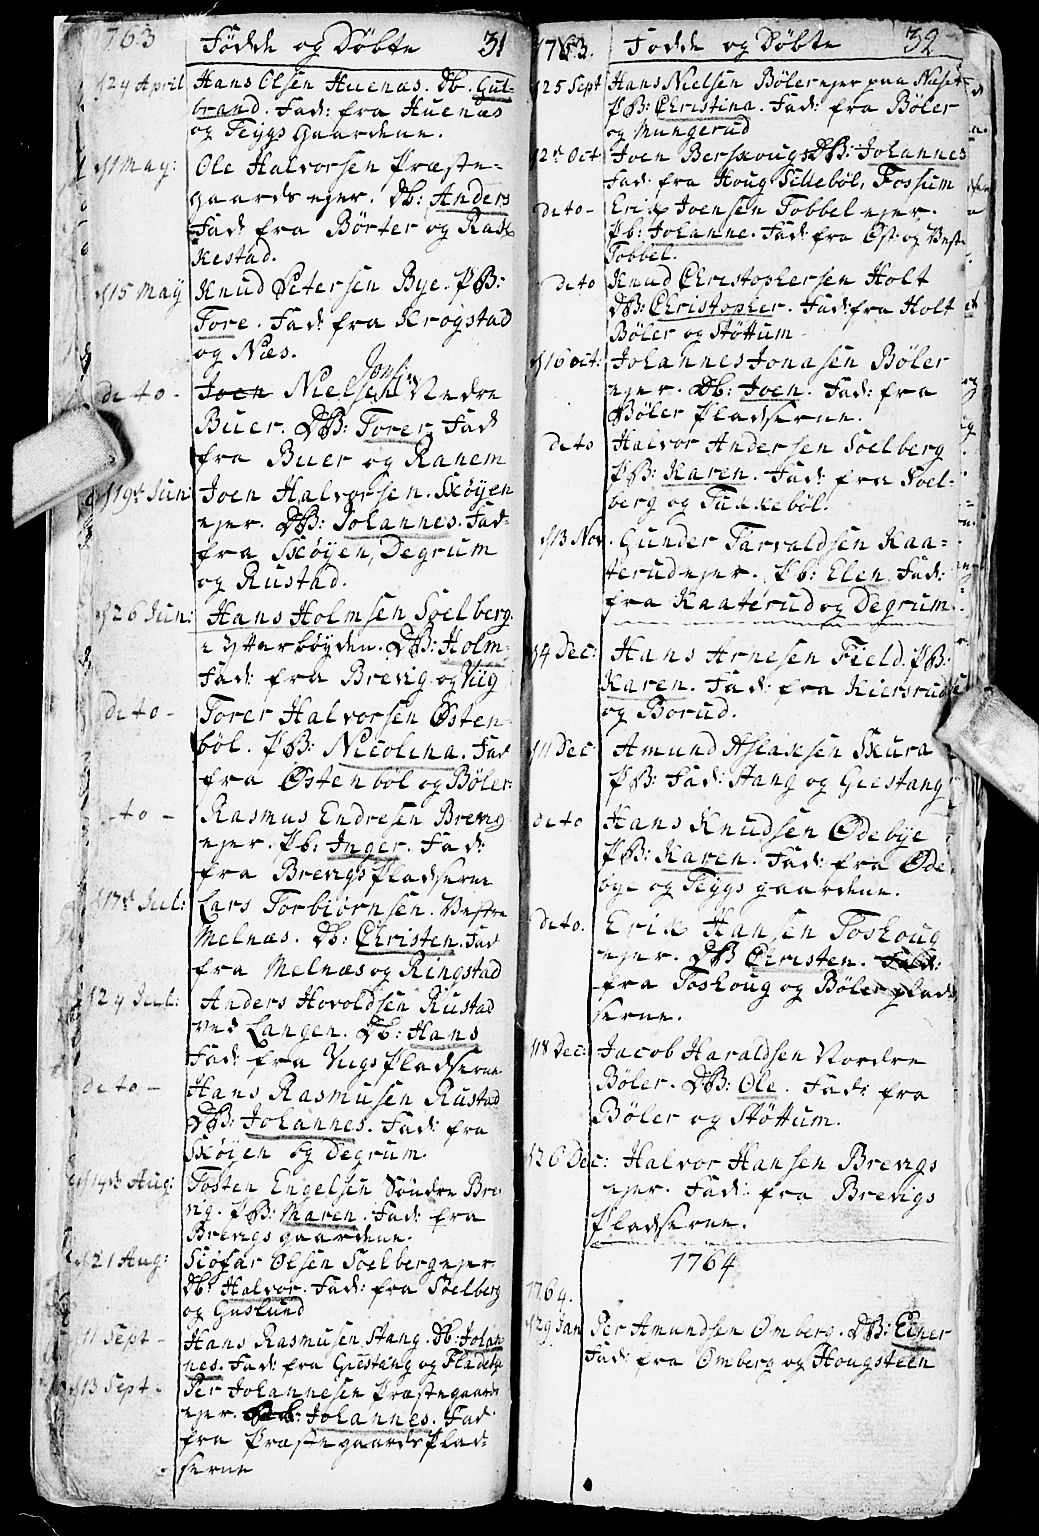 1763 Födde og Döbte 31
d 24 April Hans Olsen Huenæs. Db. Gul-
brand. Fad: fra Huenæs
og Teygs gaardene.
d 1 May: Ole Halvorsen Præste-
gaards ejer. Db: Anders
Fad: fra Börter og Rak-
kestad.
d 15 May Knud Petersen Bye. PB:
Tore. Fad: fra Krogstad
og Næs.
Jons:
deto - Joen Nielsen Nedre
Buer. DB: Torer. Fad
fra Buer og Ranem
d 19t Jun: Joen Halvorsen. Skøyen
ejer. DB: Johannes. Fad:
fra Skøyen, Degrum
og Rustad.
d 26 Jun: Hans Holmsen Soelberg
i Ytterbøyden. DB: Holm.
Fad: fra Brevig og Viig
deto - Torer Halvorsen Østen-
böl. PB: Nicolina. Fad
fra Østenböl og Böler:
-to - Rasmus Endresen Brevig
ejer. Pb: Inger. Fad:
fra Brevigs Pladserne
d 17t Jul: Lars Torbiörnsen. Vestre
Melnæs. Db: Christen. Fad
fra Melnæs og Ringstad
d 24 Jul: Anders Hovoldsen Rustad
ved Langen. Db: Hans
Fad: fra Vigs Pladserne
deto - Hans Rasmusen Rustad
DB: Johannes. Fad: fra
Skøyen og Degrum.
d 14 Aug: Tosten Engelsen Söndre Bre-
vig. PB: Maren. Fad: fra
Brevigs gaardene.
d 21 Aug: Siøfar Olsen Soelberg ejer
Db: Halvor. Fad: fra Soelberg
og Guslund
d 11 Sept - Hans Rasmusen Stang. Db: Johan-
nes. Fad: fra Giestang og Fladebye
d 13 Sept - Per Johannesen Præstegaards
ejer. Db: Johannes. Fad
fra Præstegaards Plad-
serne
1763. Fødde og Döbte 32
d 25 Sept Hans Nielsen Böler ejer paa Næset
PB: Christina. Fad: fra Böler
og Mungerud
d 2t Oct: Joen Berskougs DB: Johannes
Fad: fra Houg Sillebøl, Fossum
deto - Erik Joensen Tobbel ejer.
Pb: Johanne. Fad: fra Øst- og Vest-
Tobbel.
deto Knud Christophersen Holt
DB: Christopher. Fad: fra Holt
Böler og Støttum
d 16 oct: Johannes Jonasen Böler
ejer. Db: Joen. Fad: fra
Böler Pladserne.
deto Halvor Andersen Soelberg
PB: Karen. Fad: fra Soel-
berg og Tukkeböl.
d 13 Nov. Gunder Tarvaldsen Kaa-
terud ejer. Pb: Elen. Fad:
fra Kaaterud og Degrum.
d 4 Dec: Hans Arnesen Field. PB:
Karen. Fad: fra Kiersrud
og Borud.
d 11 Dec: Amund Aslaksen Skura
PB: Fad: Stang og Giestang
deto Hans Knudsen Ødebye
PB: Karen. Fad: fra Øde-
bye og Teygs gaardene.
deto. Erik Hansen Toskoug
ejer. DB Christen. Fad:
fra Toskoug og Böler plad-
serne.
d 18 Dec: Jacob Haraldsen Nordre
Böler. DB: Ole. Fad: fra
Böler og Støttum.
d 26 Dec: Halvor Hansen Brevigs
ejer. Fad: fra Brevigs
Pladserne.
1764
1764.
d 29 Jan Per Amundsen Omberg. DB: Einer
Fad: fra Omberg og Hougsteen